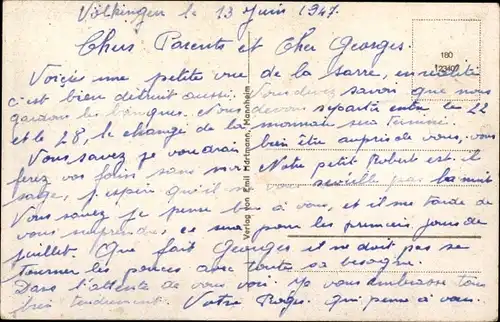 Völkingen le 13 Juin 1947.
Chers Parents et Cher Georges.
180
123407
Voici une petite vue de la sarre, en réalité
c'est bien détruit aussi. Vous devez savoir que nous
gardons les banques. Nous devons repartir entre le 22
et le 28, le change de la monnaie sera terminé.
Vous savez je voudrais bien être auprès de vous, vous
ferez vos foins sans moi. Notre petit Robert est-il
sage, j'espère qu'il ne vous réveille pas la nuit
Vous savez je pense bien à vous, et il me tarde de
vous surprendre, ce sera pour les premiers jours de
juillet. Que fait Georges il ne doit pas se
tourner les pouces avec toutes sa besogne.
Dans l'attente de vous voir je vous embrasse tous
bien tendrement. Votre Roger qui pense à vous.
Verlag von Emil Hartmann, Mannheim